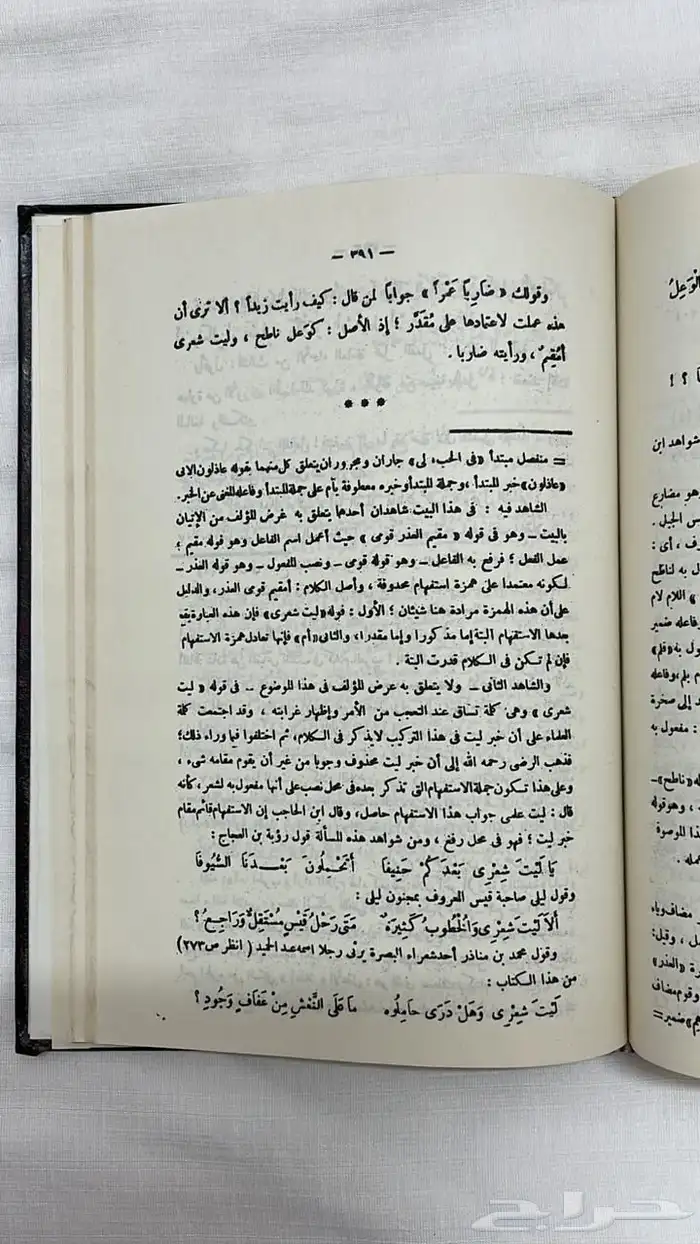 — ٣٩١ —
وقولك « ضَارِباً عَمْراً » جوابا لمن قال : كيف رأيت زيداً ؟ ألا ترى أن
هذه عملت لاعتمادها على مُقَدَّر ؛ إذ الأصل : كوَعل ناطح ، وليت شعرى
أمُقِيمٌ ، ورأيته ضاربا .
***
= منفصل مبتدأ «فى الحب، لى» جاران ومجروران يتعلق كل منهما بقوله عاذلون الآتى
«عاذلون» خبر المبتدأ، وجملة المبتدأ وخبره معطوفة بأم على جملة المبتدأ وفاعله المغنى عن الخبر.
الشاهد فيه : فى هذا البيت شاهدان أحدهما يتعلق به غرض المؤلف من الإتيان
بالبيت ــ وهو فى قوله « مقيم العذر قومى » حيث أعمل اسم الفاعل وهو قوله مقيم ؛
عمل الفعل ؛ فرفع به الفاعل ــ وهو قوله قومى ــ ونصب المفعول ــ وهو قوله العذر ــ
لكونه معتمدا على همزة استفهام محذوفة ، وأصل الكلام : أمقيم قومى العذر، والدليل
على أن هذه الهمزة مرادة هنا شيئان ؛ الأول : قوله «ليت شعرى» فإن هذه العبارة يقع
بعدها الاستفهام البتة إما مذكورا وإما مقدرا، والثانى «أم» فإنها تعادل همزة الاستفهام
فإن لم تكن فى الكلام قدرت البتة .
والشاهد الثانى ــ ولا يتعلق به غرض المؤلف فى هذا الموضوع ــ فى قوله « ليت
شعرى » وهى كلمة تساق عند التعجب من الأمر وإظهار غرابته ، وقد اجتمعت كلمة
العلماء على أن خبر ليت فى هذا التركيب لا يذكر فى الكلام، ثم اختلفوا فيما وراء ذلك؛
فذهب الرضى رحمه الله إلى أن خبر ليت محذوف وجوبا من غير أن يقوم مقامه شىء ،
وعلى هذا تكون جملة الاستفهام التى تذكر بعده فى محل نصب على أنها مفعول به لشعر، كأنه
قال : ليت علمى جواب هذا الاستفهام حاصل، وقال ابن الحاجب إن الاستفهام قائم مقام
خبر ليت ؛ فهو فى محل رفع ، ومن شواهد هذه المسألة قول رؤبة بن العجاج :
يَا لَيْتَ شِعْرِى بَعْدَكُمْ حَنِيفَا أَتَحْمِلُونَ بَعْدَنَا السُّيُوفَا
وقول ليلى صاحبة قيس المعروف بمجنون ليلى :
ألاَ لَيْتَ شِعْرِى وَالخُطُوبُ كَثِيرَةٌ مَتَى رَحْلُ قَيْسٍ مُسْتَقِلٌّ وَرَاجِعُ ؟
وقول محمد بن مناذر أحد شعراء البصرة يرثى رجلا اسمه عبد الحميد ( انظر ص ٢٧٣)
من هذا الكتاب :
لَيْتَ شِعْرِى وَهَلْ دَرَى حَامِلُوه مَا عَلَى النَّعْشِ مِنْ عَفَافٍ وَجُودِ ؟
الْوَعِلُ
شواهد ابن
وهو مضارع
« ناطح »ــ
، وهو قوله
: مفعول به
حراج